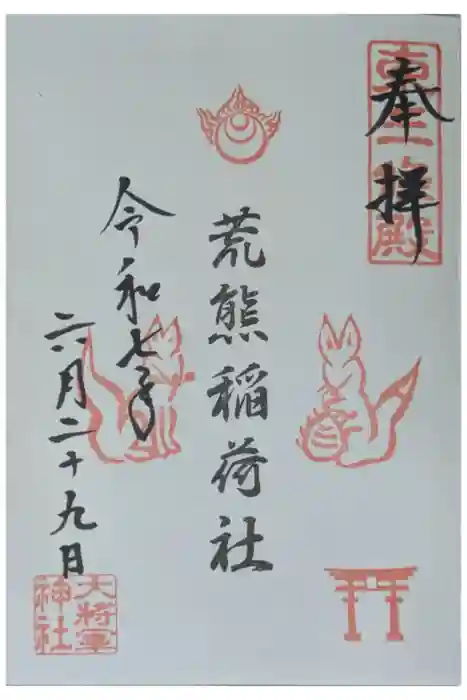 奉拝
荒熊稲荷社
令和七年
六月二十九日
大将軍
神社